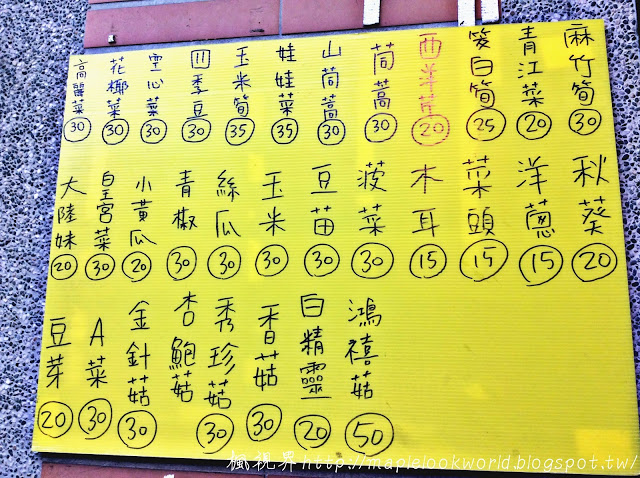 麻竹筍 30
青江菜 20
筊白筍 25
西洋芹 20
茼蒿 30
山茼蒿 30
娃娃菜 35
玉米筍 35
四季豆 30
空心菜 30
花椰菜 30
高麗菜 30
秋葵 20
洋蔥 15
菜頭 15
木耳 15
菠菜 30
豆苗 30
玉米 30
絲瓜 30
青椒 30
小黃瓜 20
皇宮菜 30
大陸妹 20
鴻禧菇 50
白精靈 20
香菇 30
秀珍菇 30
杏鮑菇
金針菇 30
A菜 30
豆芽 20
楓視界http://maplelookworld.blogspot.tw/